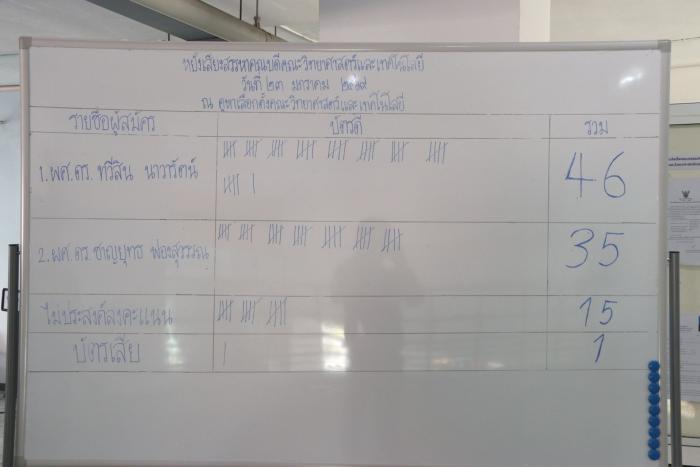 หยั่งเสียงสรรหาคณบดีคณะวิทยาศาสตร์และเทคโนโลยี
วันที่ ๒๓ มกราคม ๒๕๖๗
ณ คูหาเลือกตั้งคณะวิทยาศาสตร์และเทคโนโลยี
รายชื่อผู้สมัคร บัตรดี รวม
1. ผศ. ดร. ทวีสิน นาวารัตน์ 46
2. ผศ. ดร. ชาญยุทธ ฟองสุวรรณ 35
ไม่ประสงค์ลงคะแนน 15
บัตรเสีย 1